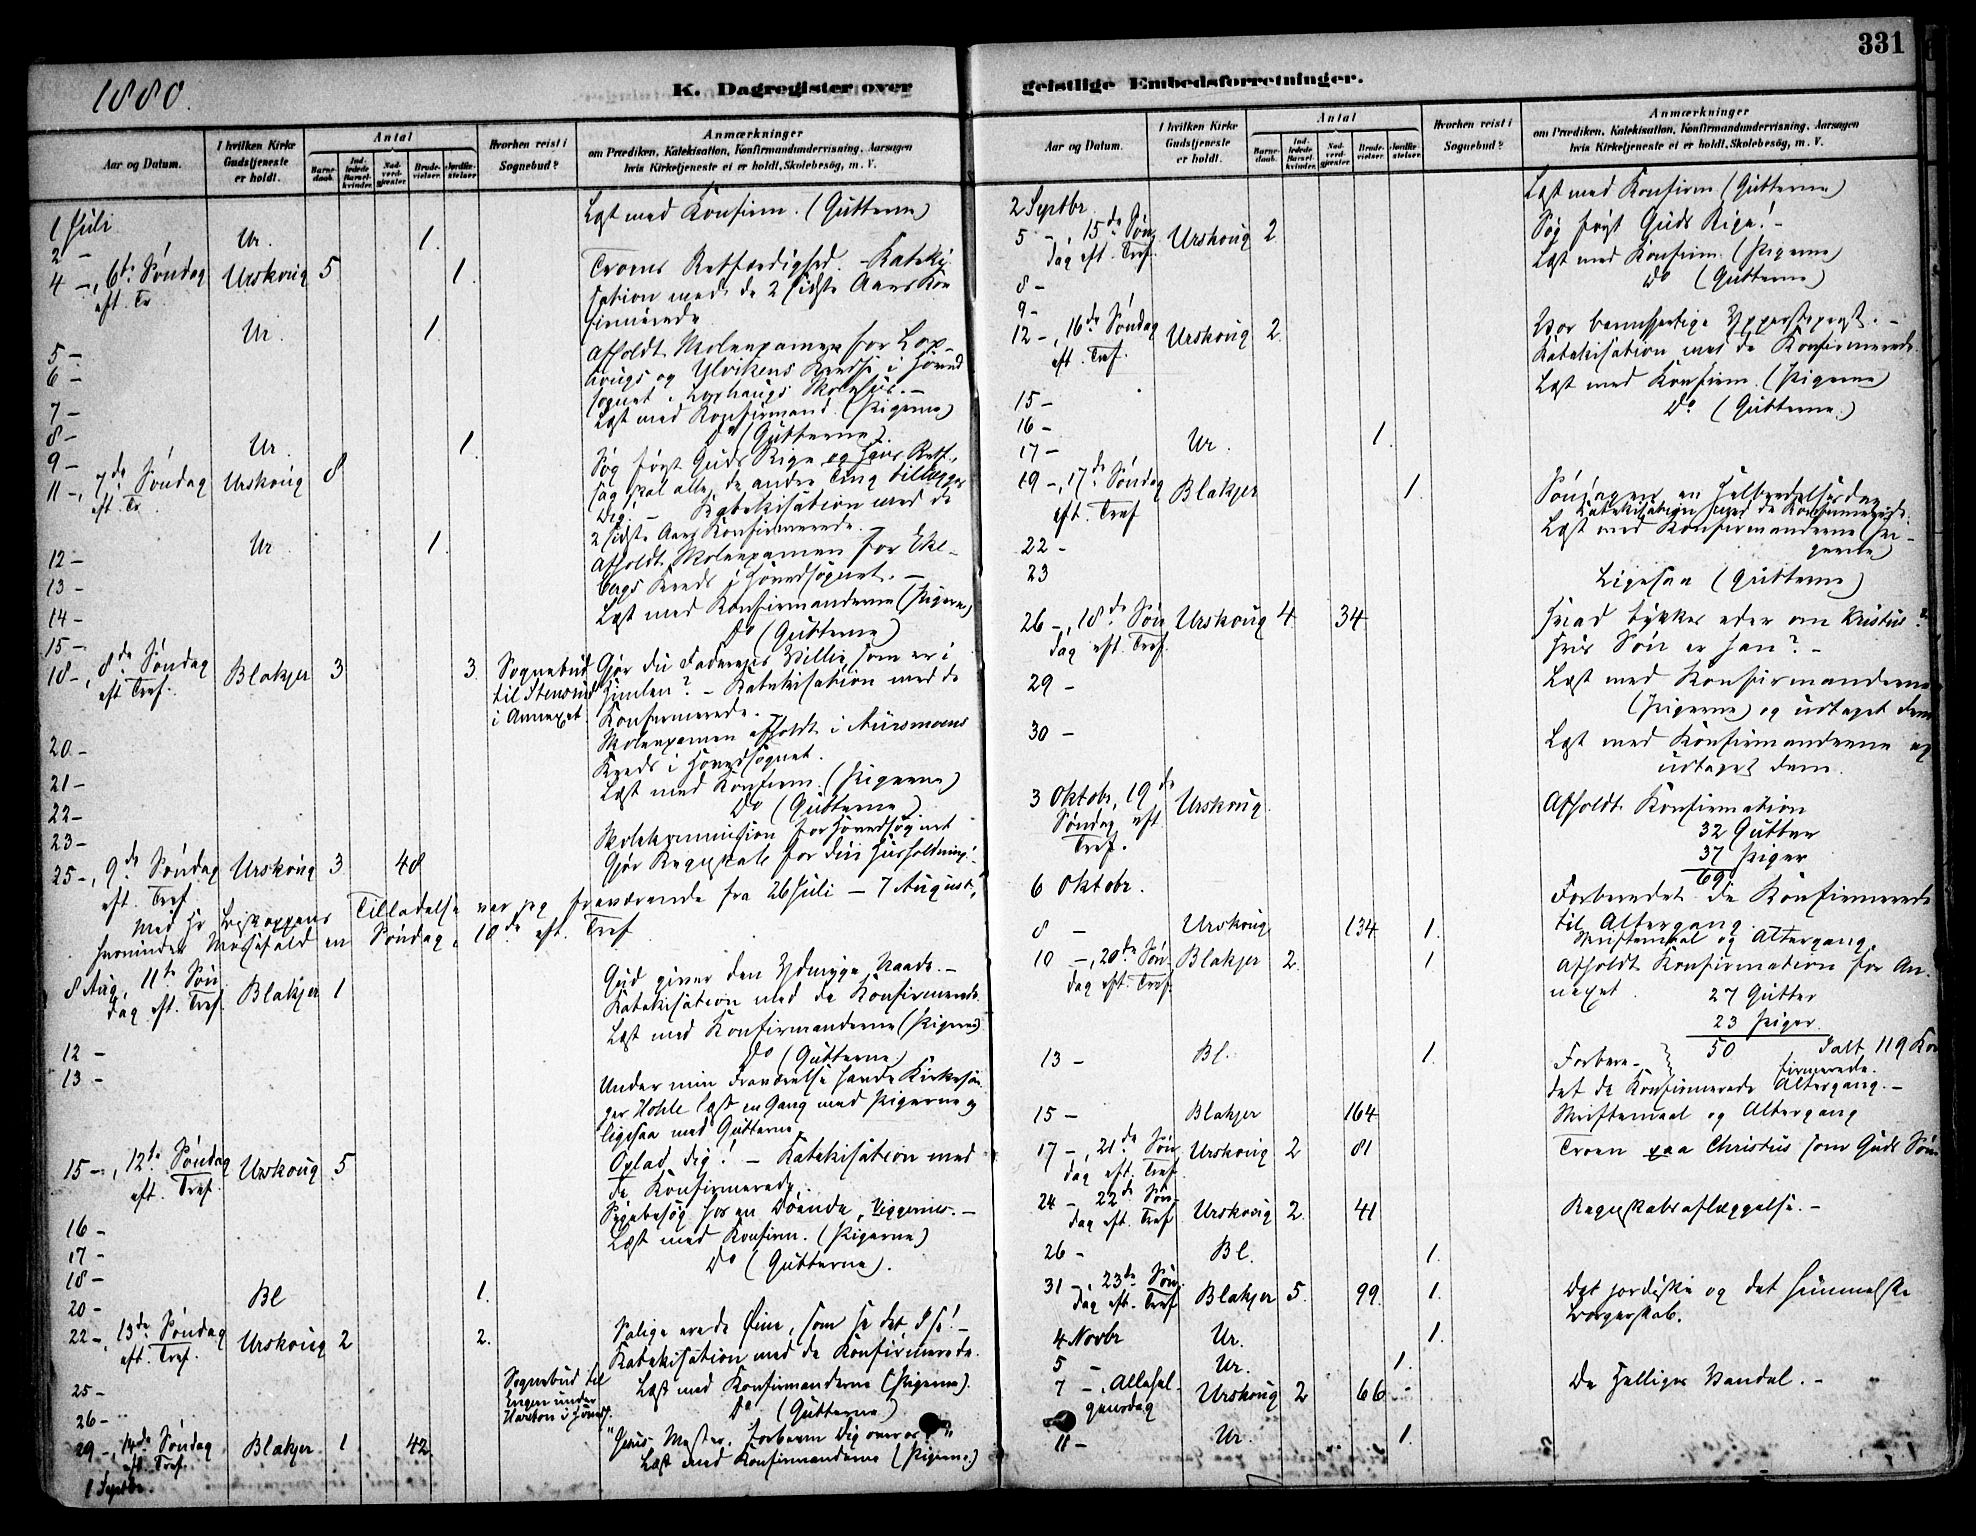 331
1880.
K. Dagregister over geistlige Embedsforretninger.
Aar og Datum.
I hvilken Kirke Gudstjeneste er holdt.
Antal
Barnedaab.
Indledede Barselkvinder.
Nadverdgjester
Brudevielser.
Jordfæstelser
Hvorhen reist i Sognebud?
Anmærkninger
om Prædiken, Katekisation, Konfirmandundervisning, Aarsagen
hvis Kirketjeneste ei er holdt, Skolebesög, m. V.
1 Juli Læst med Konfirm. (Gutterne)
2 – Ur. 1.
4 –, 6te Søndag eft. Tr Urskoug 5 1. Troens Retfærdighed. – Kateki
sation med de 2 sidste Aars Kon
firmerede
5 – Ur. 1. Afholdt Skoleexamen for Lox
6 – hougs og Ulvikens Kreds i Hoved
sognet i Loxhougs Skolehus. –
7 – Læst med Konfirmand. (Pigerne)
8 – Do (Gutterne).
9 – Ur. 1.
11 –, 7de Søndag eft. Tr. Urskoug 8 Søg først Guds Rige og Hans Retf.,
saa skal alle de andre Ting tillægges
Dig! – Katekisation med de
2 sidste Aars Konfirmerede. –
12 – Ur 1. Afholdt Skoleexamen for Eke-
13 – bergs Kreds i Hovedsognet. –
14 – Læst med Konfirmanderne (Pigerne)
15 – Do (Gutterne)
18 –, 8de Søndag eft Tref. Blakjer 3 3. Sognebud til Stensrud i Annexet. Gjør du Faderens Villie, som er i
Himlen? – Katekisation med de
Konfirmerede. –
20 – Skoleexamen afholdt i Aursmoens
Kreds i Hovedsognet.
21 – Læst med Konfirm. (Pigerne)
22 – Do (Gutterne)
23 – Skolekommission for Hovedsognet
25 –, 9de Søndag eft. Tref. Urskoug 3 48 Gjør Regnskab for din Husholdning! –
Med Hr Biskoppens Tilladelse var jeg fraværende fra 26 Juli – 7 August,
herunder Messefald en Søndag, 10de eft. Tref
8 Aug, 11te Søndag eft. Tref. Blakjer 1 Gud giver den Ydmyge Naade. –
Katekisation med de Konfirmerede.
12 – Læst med Konfirmanderne (Pigerne)
13 – Do (Gutterne)
Under min Fraværelse havde Kirkesan
ger Hohle læst en Gang med Pigerne og
ligesaa med Gutterne.
15 –, 12te Søndag eft. Tref. Urskoug 5. Oplad dig! – Katekisation med
de Konfirmerede.
16 – Sygebesøg hos en Døende, –
17 – Læst med Konfirm. (Pigerne)
18 – Do (Gutterne).
20 – Bl 1.
22 –, 13de Søndag eft. Tref. Urskoug 2 2. Salige ere de Øine, som se det I se! –
Katekisation med de Konfirmerede.
25 – Sognebud til Læst med Konfirmanderne (Pigerne).
26 – Do (Gutterne)
29 –, 14de Søndag eft. Tref. Blakjer 1 42 "Jesus Mester, forbarm Dig over os!"
1 Septbr. Læst med Konfirmanderne (Pigerne)
2 Septbr. Læst med Konfirm (Gutterne)
5 –, 15de Søndag eft. Tref. Urskoug 2 Søg først Guds Rige! –
8 – Læst med Konfirm. (Pigerne)
9 – Do (Gutterne)
12 –, 16de Søndag eft. Tref. Urskoug 2. Vor barmhjertige Ypperstepræst. –
Katekisation med de Konfirmerede.
15 – Læst med Konfirm. (Pigerne)
16 – Do (Gutterne.)
17 – Ur. 1.
19 –, 17de Søndag eft. Tref Blakjer 1. Søndagen en Helbredelsesdag
Katekisation med de Konfirmerede.
22 – Læst med Konfirmanderne (Pi-
gerne)
23 Ligesaa (Gutterne)
26 –, 18de Søndag eft. Tref. Urskoug 4 34 Hvad tykkes eder om Kristus?
Hvis Søn er han? –
29 – Læst med Konfirmanderne
(Pigerne) og udtaget dem
30 – Læst med Konfirmanderne og
udtaget dem.
3 Oktobr, 19de Søndag eft Tref. Urskoug Afholdt Konfirmation
32 Gutter
37 Piger
69
6 Oktobr. Forberedet de Konfirmerede
til Altergang
8 – Urskoug 134 1. Skriftemaal og Altergang.
10 –, 20de Søndag eft. Tref. Blakjer 2. 1 Afholdt Konfirmation for An-
nexet.
27 Gutter
23 Piger
50 Ialt 119 Konfirmerede.
13 – Bl. 1. Forbere-
det de Konfirmerede Altergang. –
15 – Blakjer 164 Skriftemaal og Altergang
17 –, 21de Søndag eft. Tref Urskoug 2 81 Troen paa Christus som Guds Søn
24 – 22de Søndag eft. Tref Urskoug 2. 41 Regnskabsaflæggelse. –
26 – Bl. 1.
31 –, 23de Søndag eft. Tref Blakjer 5. 99. 1. Det jordiske og det himmelske
Borgerskab.
4 Novbr Ur. 1.
5 – Ur. 1.
7 –, Allehelgensdag Urskoug 2 66 De Helliges Vandel. –
11 – Ur. 1.